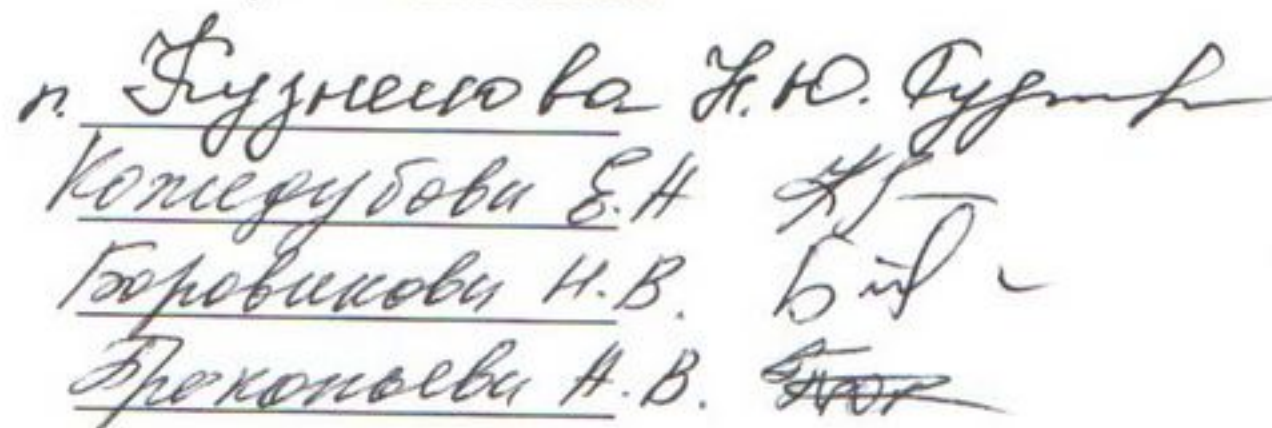 п. Кузнецова Н.Ю.
Кожедубова Е.Н
Боровикова Н.В.
Прокопьева А.В.